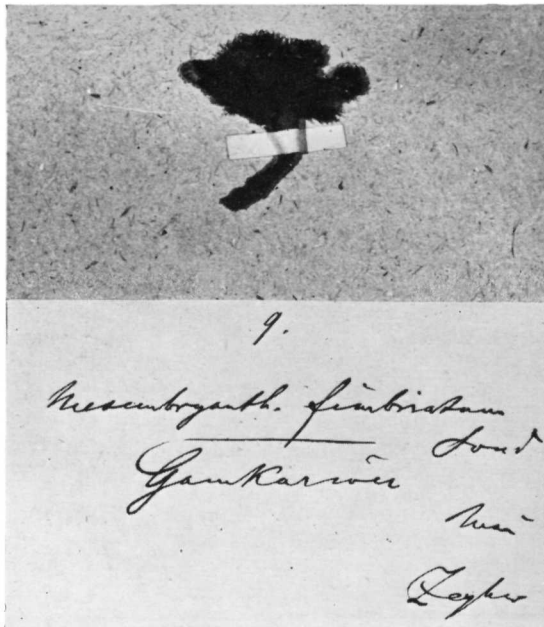 9.
Mesembryanth. fimbriatum
Sond
Gamkarivier
Zeyher